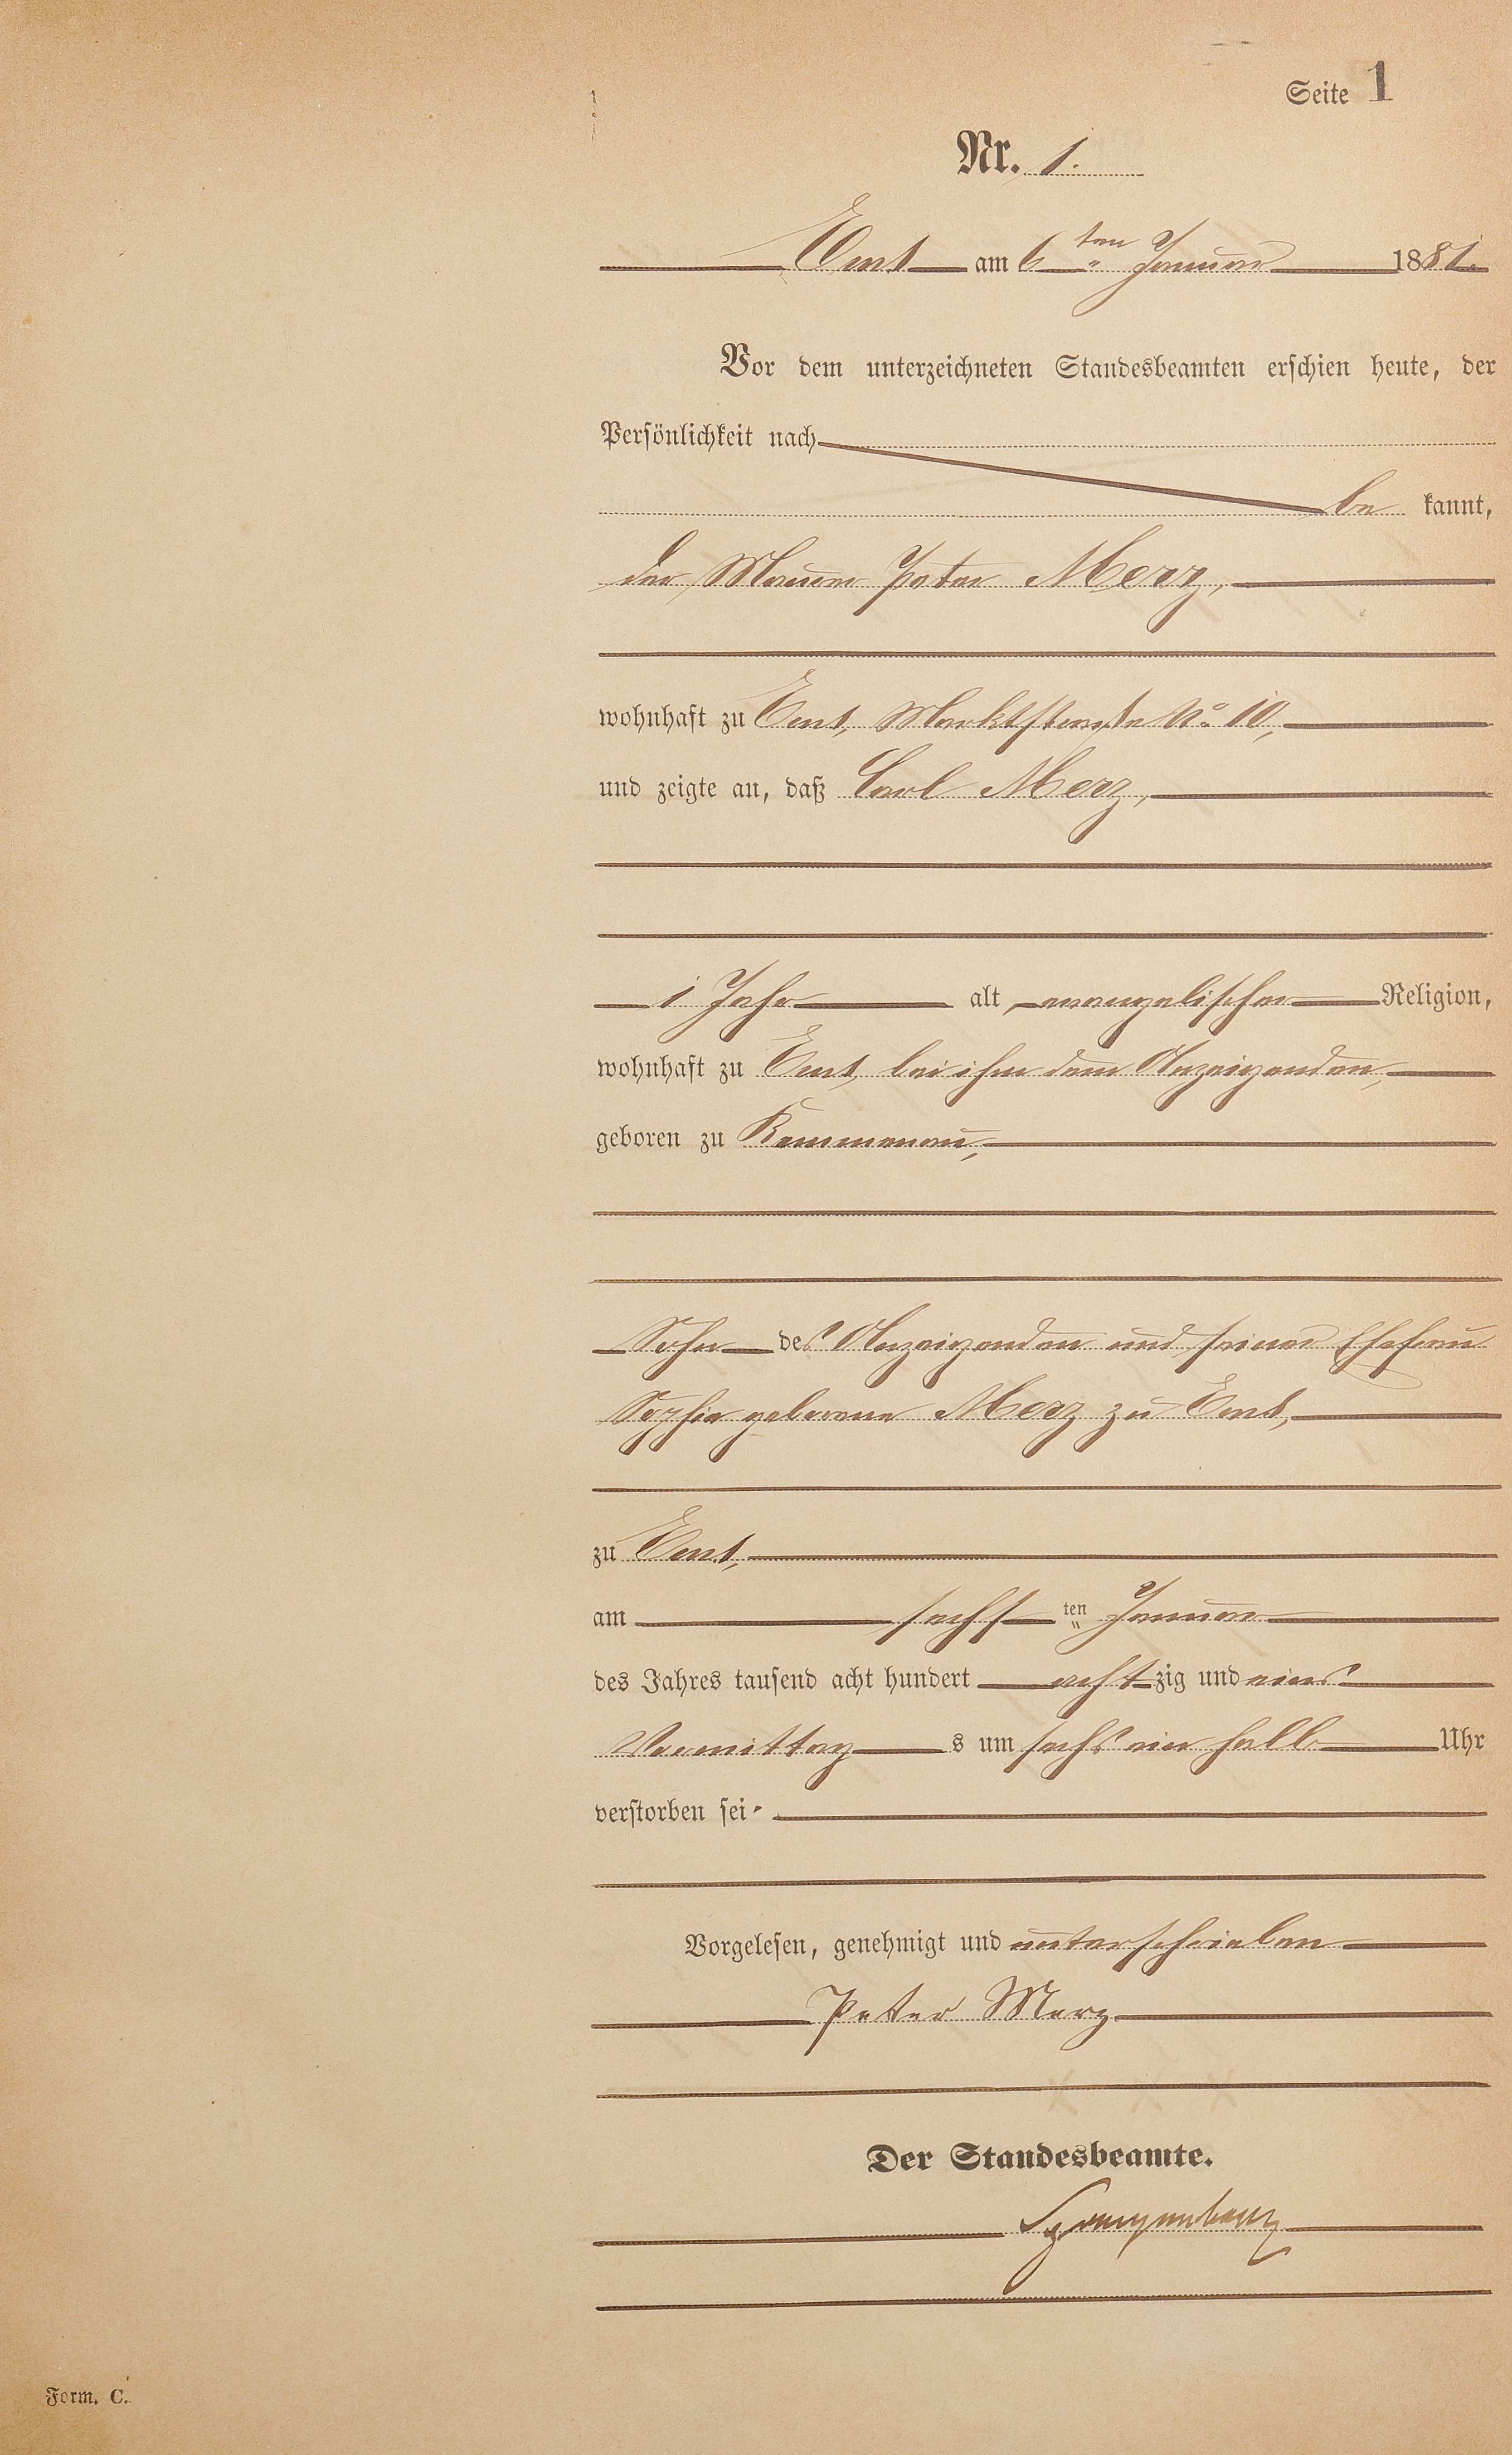 Seite 1
Nr. 1.
Ems am 6ten Januar 1881.
Vor dem unterzeichneten Standesbeamten erschien heute, der
Persönlichkeit nach
be kannt,
der Maurer Peter Merz,
wohnhaft zu Ems, Marktstraße No. 10,
und zeigte an, daß Carl Merz,
1 Jahr alt, evangelischer Religion,
wohnhaft zu Ems, bei ihm dem Anzeigenden,
geboren zu Kemmenau,
Sohn des Anzeigenden und seiner Ehefrau
Sophie geborene Merz zu Ems,
zu Ems,
am sechsten Januar
des Jahres tausend acht hundert achtzig und eins
Vormittags um sechs ein halb Uhr
verstorben sei.
Vorgelesen, genehmigt und unterschrieben
Peter Merz
Der Standesbeamte.
Spangenberg
Form. C.